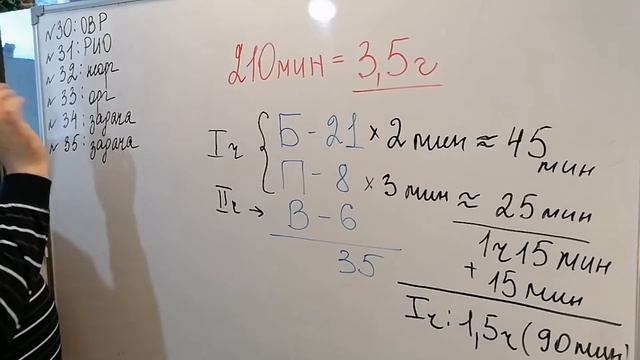 №30: ОВР
№31: РИО
№32: неорг
№33: орг
№34: задача
№35: задача
210мин = 3,5ч
Iч { Б - 21 × 2 мин ≈ 45 мин
П - 8 × 3 мин ≈ 25 мин
IIч → В - 6
35
1ч 15 мин
+ 15 мин
Iч: 1,5ч (90 мин)